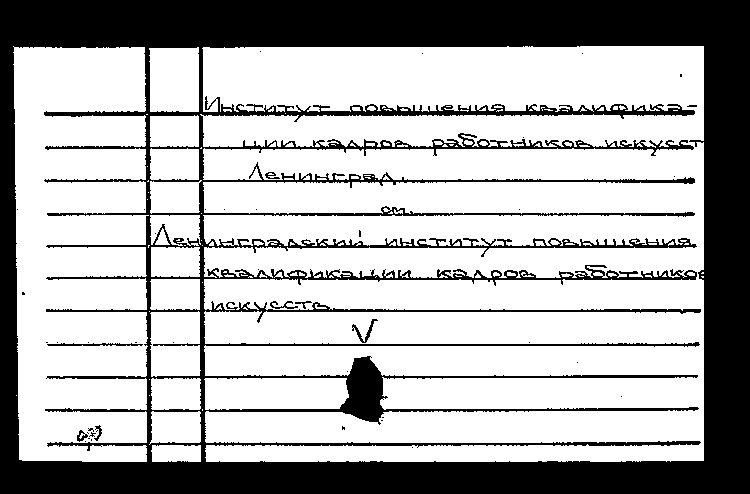 Институт повышения квалифика-
ции кадров работников искусст
Ленинград.
см.
Ленинградский институт повышения
квалификации кадров работников
искусств